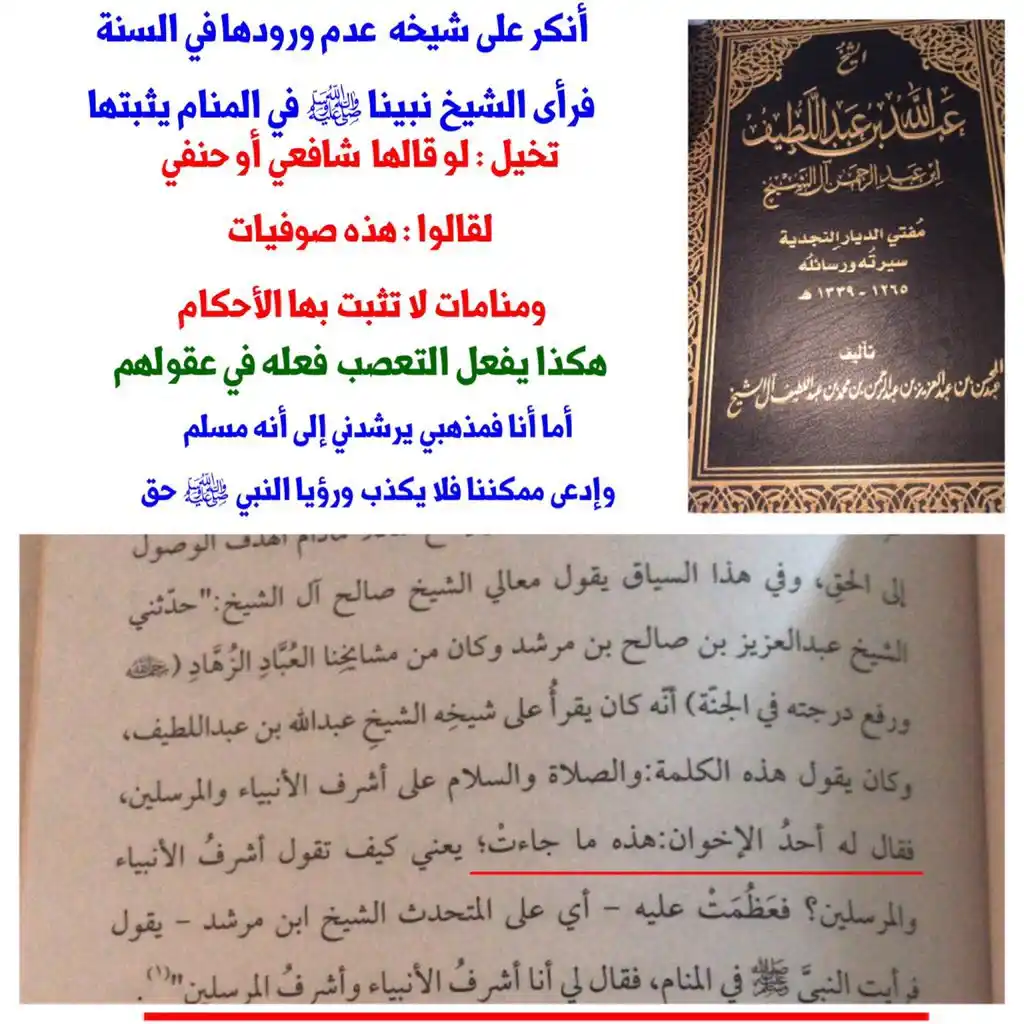 أنكر على شيخه عدم ورودها في السنة
فرأى الشيخ نبينا ﷺ في المنام يثبتها
تخيل : لو قالها شافعي أو حنفي
لقالوا : هذه صوفيات
ومنامات لا تثبت بها الأحكام
هكذا يفعل التعصب فعله في عقولهم
أما أنا فمذهبي يرشدني إلى أنه مسلم
وإدعى ممكننا فلا يكذب ورؤيا النبي ﷺ حق
الشيخ
عبد الله بن عبد اللطيف
ابن عبد الرحمن آل الشيخ
مفتي الديار النجدية
سيرته ورسائله
١٢٦٥ - ١٣٣٩ هـ
تأليف
عبد المحسن بن عبد العزيز بن عبد الرحمن بن محمد بن عبد اللطيف آل الشيخ
الوصول
إلى الحق، وفي هذا السياق يقول معالي الشيخ صالح آل الشيخ:"حدّثني
الشيخ عبدالعزيز بن صالح بن مرشد وكان من مشايخنا العُبَّادِ الزُهَّادِ (رحمه الله
ورفع درجته في الجنّة) أنّه كان يقرأُ على شيخِه الشيخِ عبدالله بن عبداللطيف،
وكان يقول هذه الكلمة:والصلاة والسلام على أشرف الأنبياء والمرسلين،
فقال له أحدُ الإخوان:هذه ما جاءتْ؛ يعني كيف تقول أشرفُ الأنبياء
والمرسلين؟ فعَظُمَتْ عليه - أي على المتحدث الشيخ ابن مرشد - يقول
فرأيت النبيَّ ﷺ في المنام، فقال لي أنا أشرفُ الأنبياء وأشرفُ المرسلين"(١).